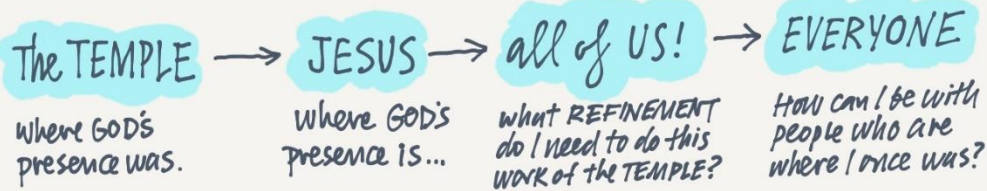 The TEMPLE → JESUS → all of US! → EVERYONE
where GOD'S
presence was.
where GOD'S
presence is...
what REFINEMENT
do I need to do this
WORK of the TEMPLE?
How can I be with
people who are
where I once was?